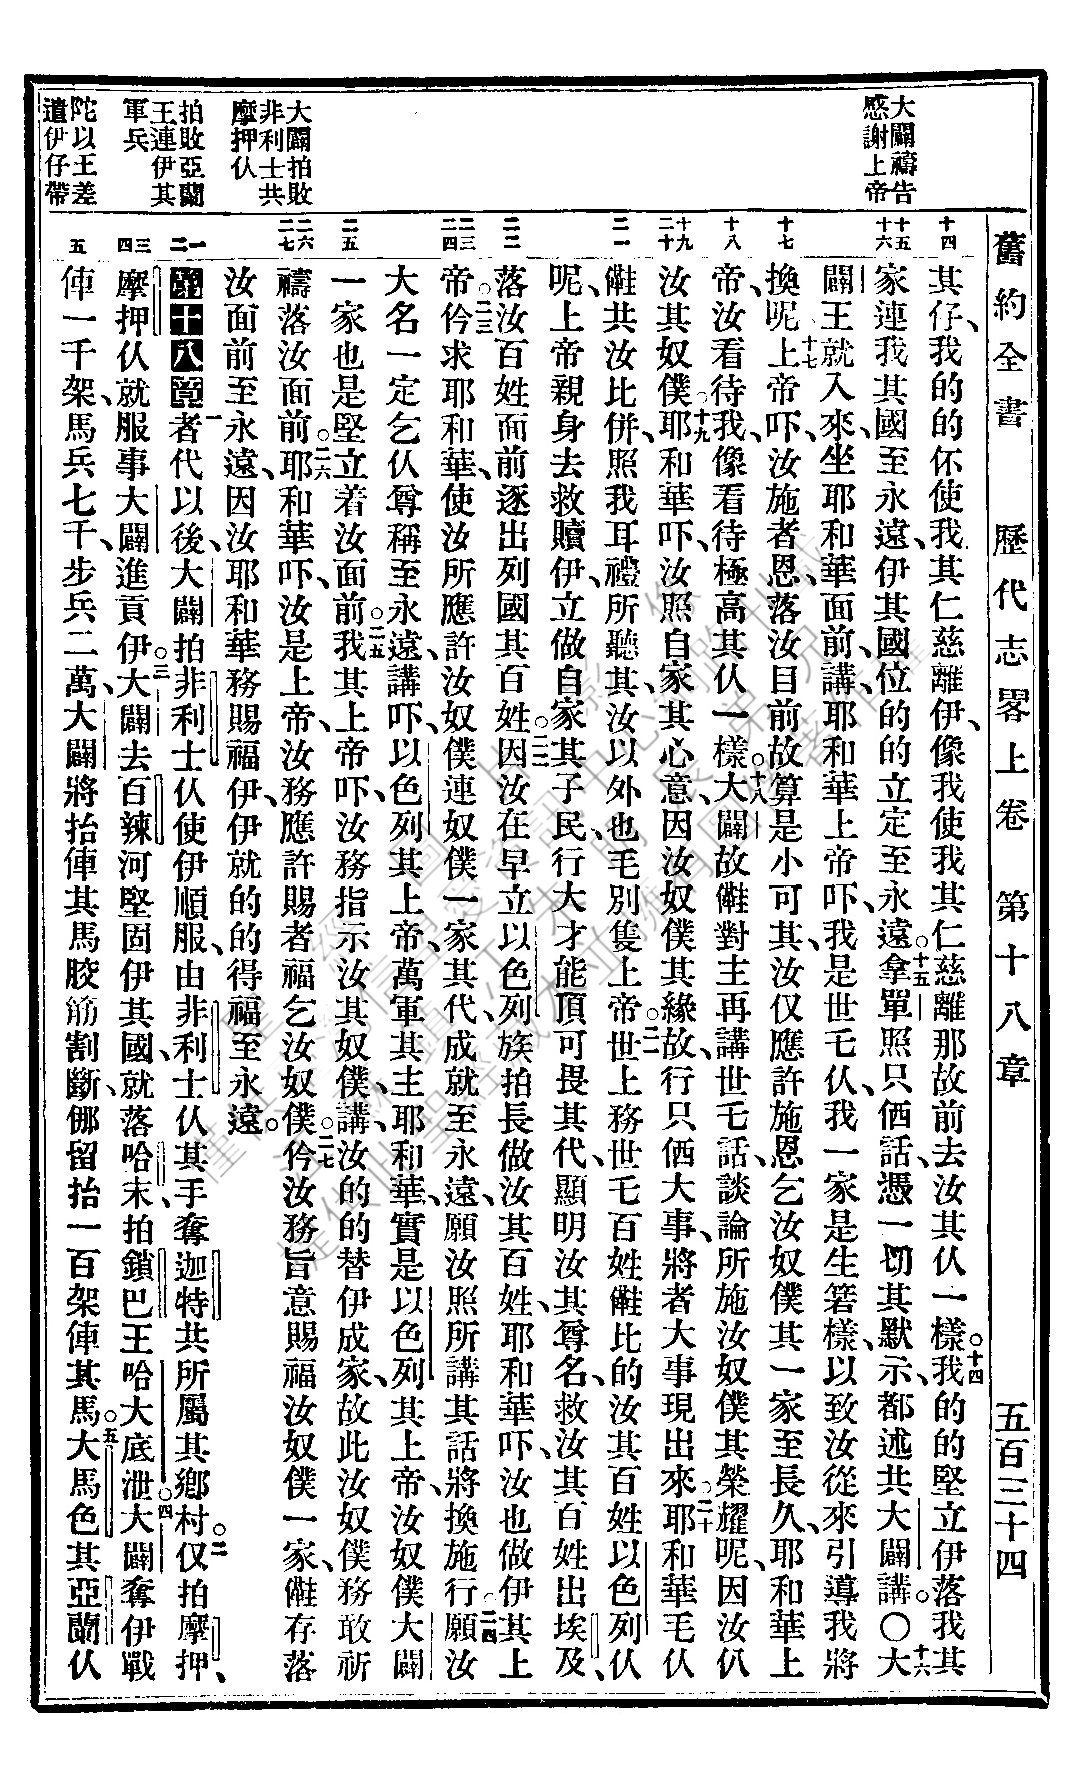 舊約全書 歷代志畧上卷 第十八章 五百三十四
大闢禱告
感謝上帝
大闢拍敗
非利士共
摩押仈
拍敗亞蘭
王連伊其
軍兵
陀以王差
遣伊仔帶
十四
其仔、我的的伓使我其仁慈離伊、像我使我其仁慈離那故前去汝其仈一樣。十四我的的堅立伊落我其
十五 十六
家連我其國至永遠、伊其國位的的立定至永遠。十五拿單照只𠆧話、憑一切其默示、都述共大闢講。〇十六大
闢王就入來、坐耶和華面前、講、耶和華上帝吓、我是世乇仈、我一家是生䇬樣、以致汝從來引導我將
十七
換呢、十七上帝吓、汝施者恩、落汝目前、故算是小可其、汝仅應許施恩乞汝奴僕其一家至長久、耶和華上
十八
帝、汝看待我、像看待極高其仈一樣。十八大闢故㑚對主再講世乇話、談論所施汝奴僕其榮耀呢、因汝仈
十九 二十
汝其奴僕。十九耶和華吓、汝照自家其心意、因汝奴僕其緣故、行只𠆧大事、將者大事現出來。二十耶和華毛仈
二一
㑚共汝比併、照我耳䆀所聽其、汝以外也毛別隻上帝。二一世上務世乇百姓㑚比的汝其百姓以色列仈
呢、上帝親身去救贖伊、立做自家其子民、行大才能頂可畏其代、顯明汝其尊名、救汝其百姓出埃及、
二二
落汝百姓面前逐出列國其百姓。二二因汝在早立以色列族拍長做汝其百姓、耶和華吓、汝也做伊其上
二三 二四
帝。二三伶求耶和華、使汝所應許汝奴僕連奴僕一家其代、成就至永遠、願汝照所講其話將換施行。二四願汝
大名一定乞仈尊稱至永遠、講吓、以色列其上帝、萬軍其主耶和華、實是以色列其上帝、汝奴僕大闢
二五
一家也是堅立着汝面前。二五我其上帝吓、汝務指示汝其奴僕、講、汝的的替伊成家、故此汝奴僕務敢祈
二六 二七
禱落汝面前。二六耶和華吓、汝是上帝、汝務應許賜者福乞汝奴僕。二七伶汝務旨意賜福汝奴僕一家、㑚存落
汝面前至永遠、因汝耶和華務賜福伊、伊就的的得福至永遠。
一 二
第十八章 一者代以後、大闢拍非利士仈、使伊順服、由非利士仈其手奪迦特共所屬其鄉村。二仅拍摩押、
三 四
摩押仈就服事大闢、進貢伊。三大闢去百辣河堅固伊其國、就落哈末拍鎖巴王哈大底泄。四大闢奪伊戰
五
俥一千架、馬兵七千、步兵二萬、大闢將抬俥其馬胶筋割斷、㑚留抬一百架俥其馬。五大馬色其亞蘭仈